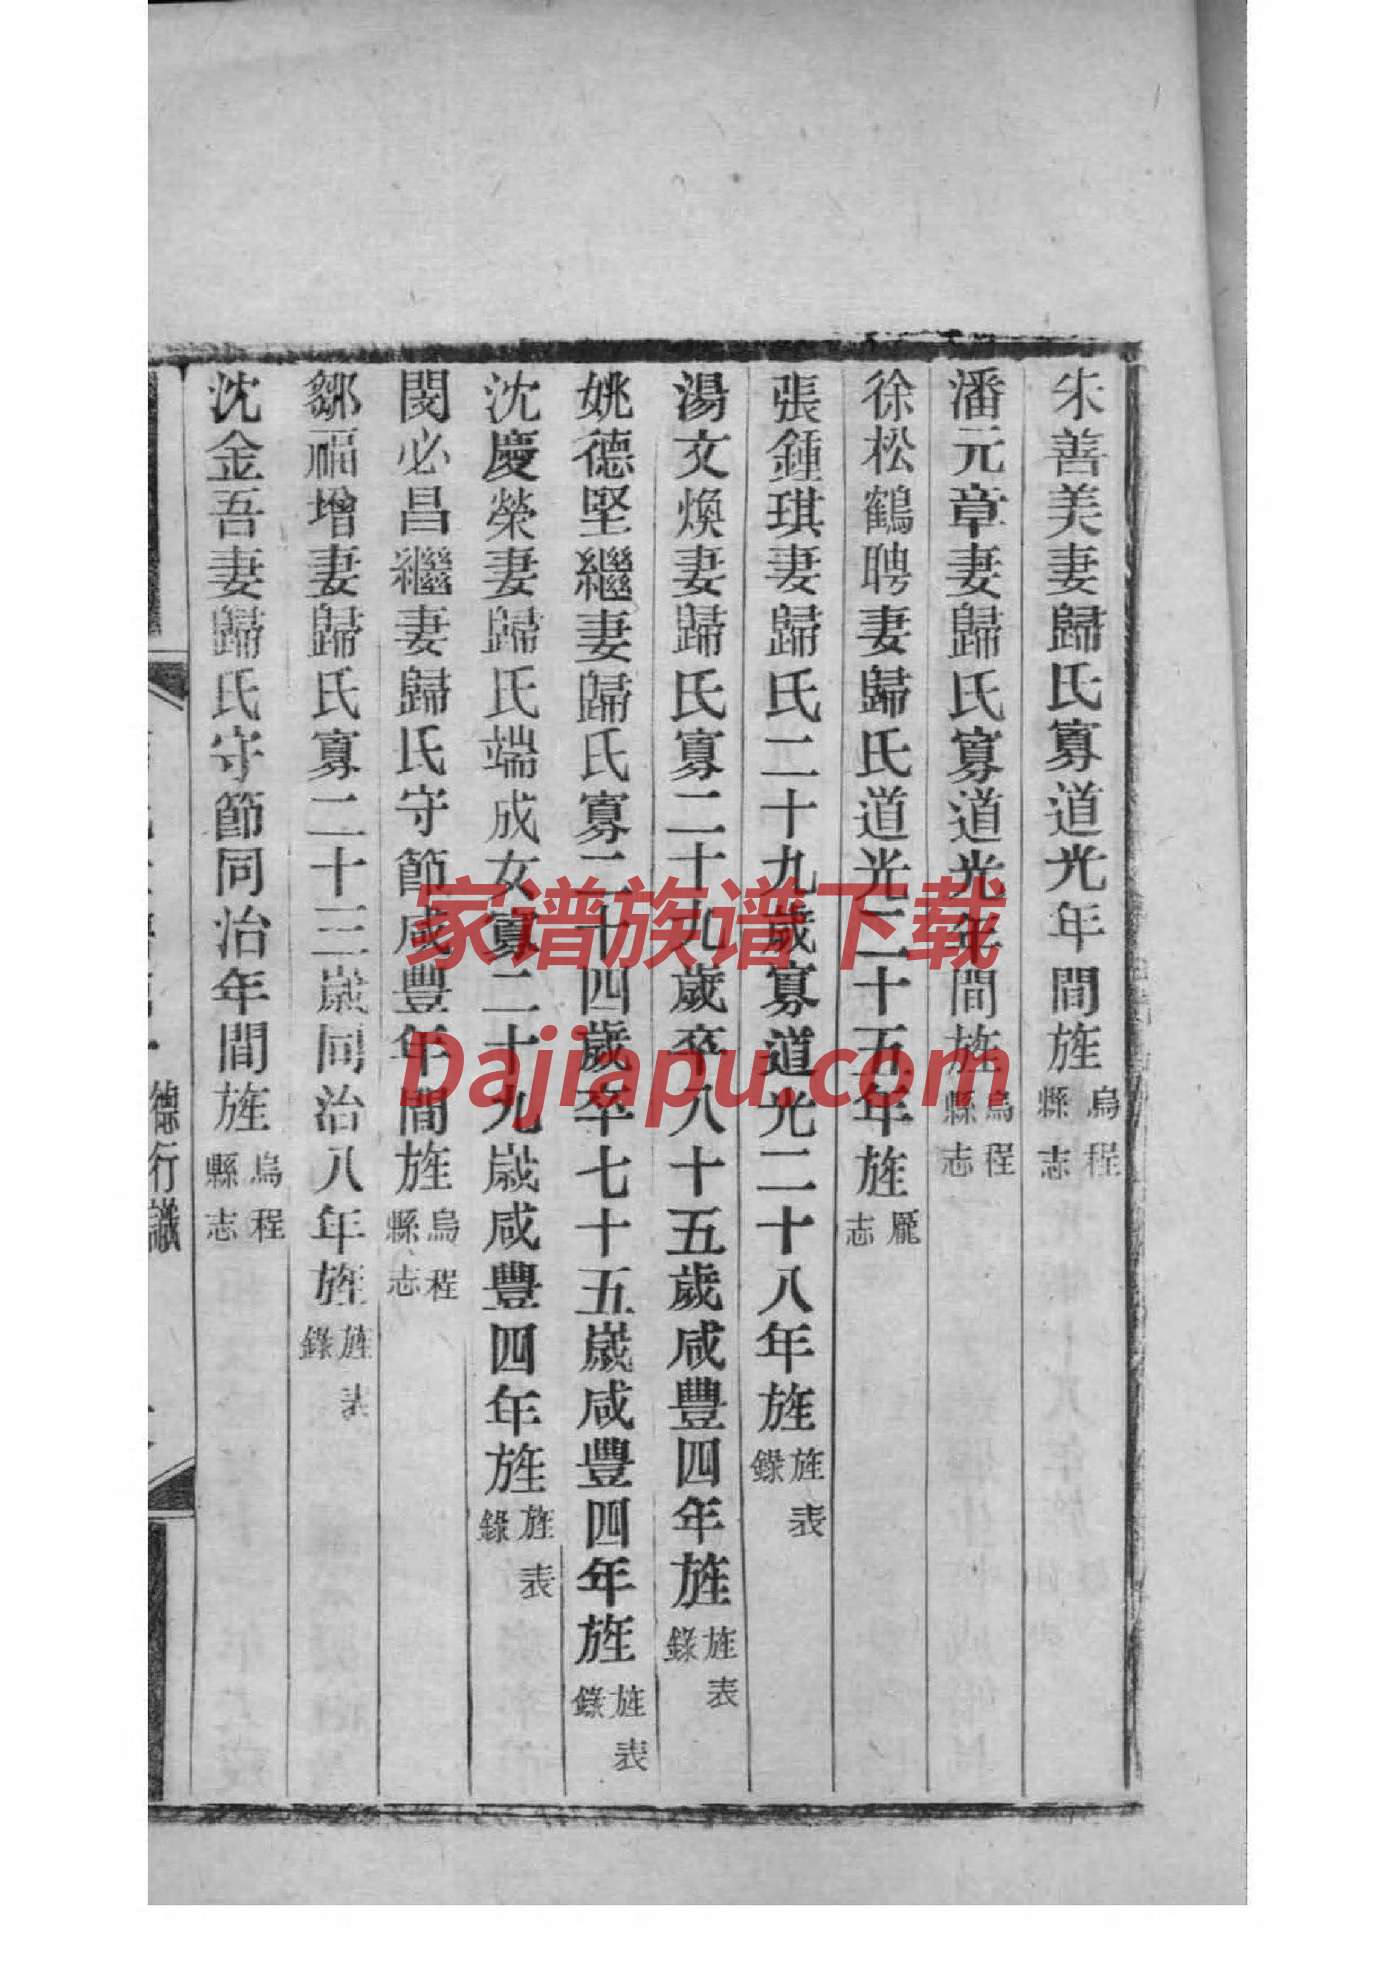 朱善美妻歸氏寡道光年間旌烏程縣志
潘元章妻歸氏寡道光年間旌烏程縣志
徐松鶴聘妻歸氏道光二十五年旌厲志
張鍾琪妻歸氏二十九歲寡道光二十八年旌旌表錄
湯文煥妻歸氏寡二十九歲卒八十五歲咸豐四年旌旌表錄
姚德堅繼妻歸氏寡二十四歲卒七十五歲咸豐四年旌旌表錄
沈慶榮妻歸氏端成女寡二十九歲咸豐四年旌旌表錄
閔必昌繼妻歸氏守節咸豐年間旌烏程縣志
鄒福增妻歸氏寡二十三歲同治八年旌旌表錄
沈金吾妻歸氏守節同治年間旌烏程縣志
德行識
家谱族谱下载
Dajiapu.com